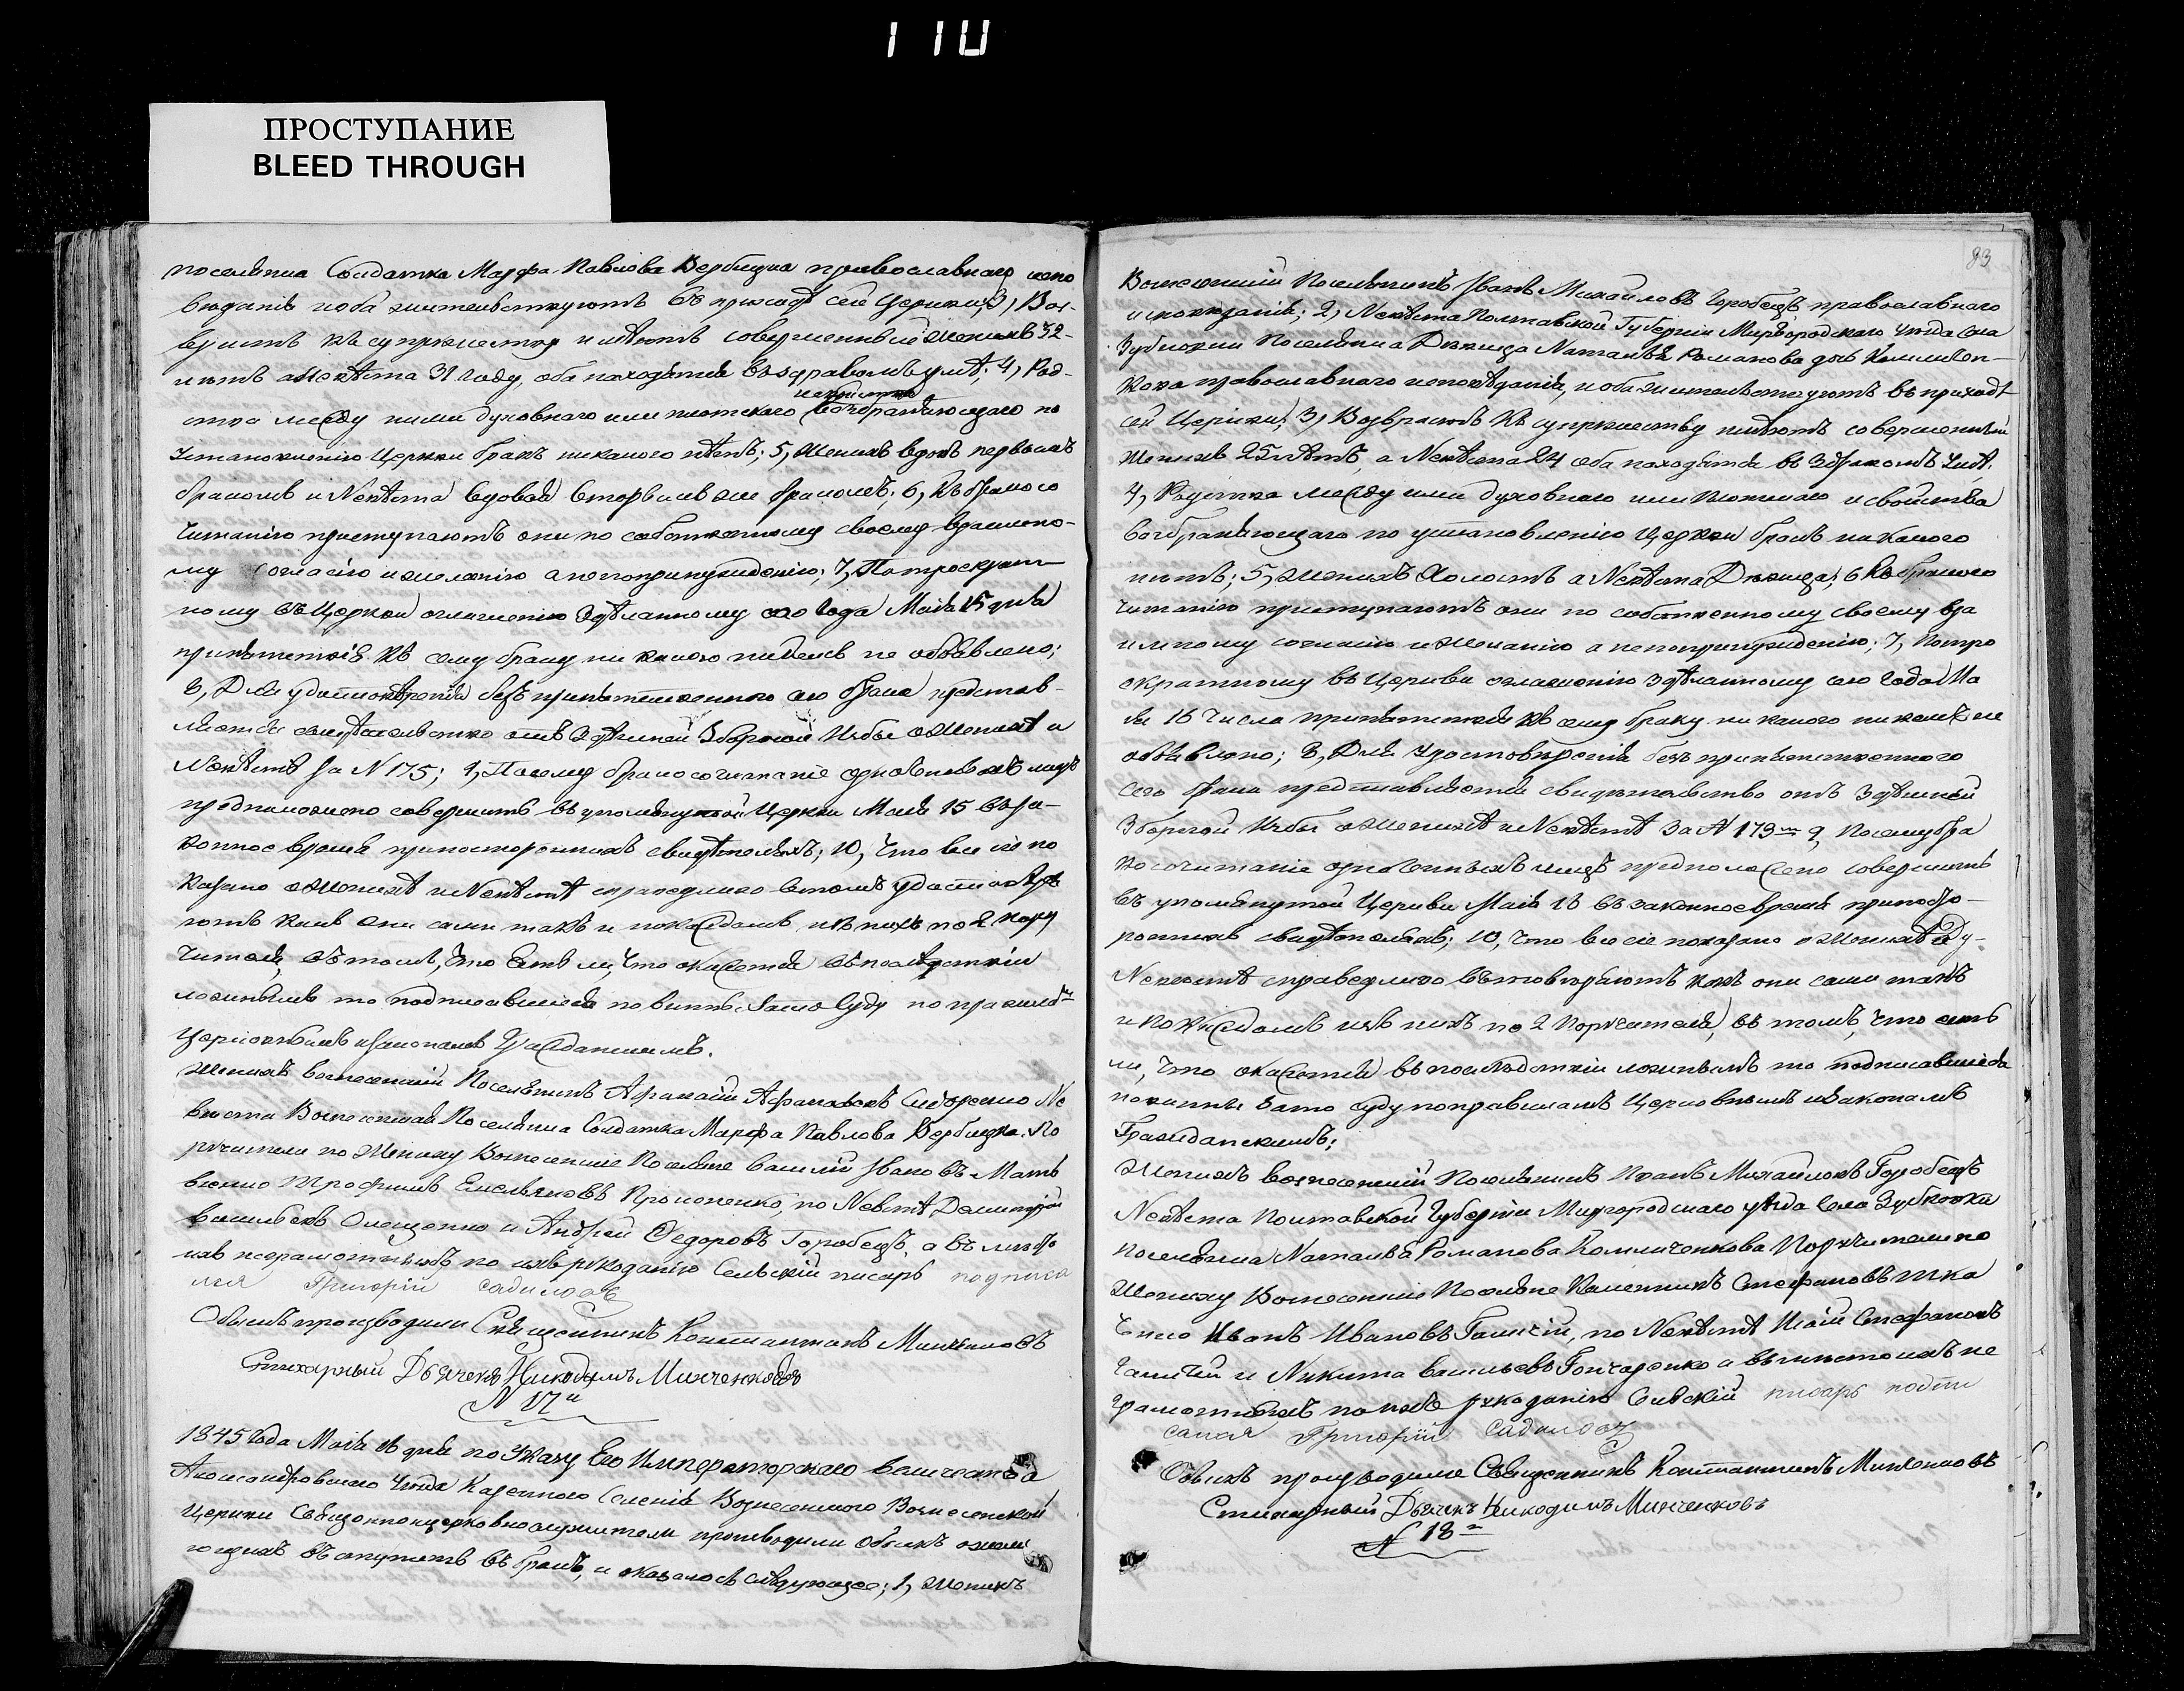 110
ПРОСТУПАНИЕ
BLEED THROUGH
поселянка Солдатка Марфа Павлова Вербицка православнаго испо
веданія и оба жительствуютъ въ приходѣ сей Церкви; 3, Воз-
растъ къ супружеству имѣютъ совершенный Женихъ 32-
лѣтъ а Невѣста 31 году, оба находятся въ здравомъ умѣ; 4, Род-
ства между ними духовнаго или плотскаго и свойства возбраняющаго по
Установленію Церкви бракъ никакого нѣтъ; 5, Женихъ вдовъ первымъ
бракомъ и Невѣста вдовой вторымъ же бракомъ; 6, Къ бракосо
читанію приступаютъ они по собственному своему взаимно-
му согласію и желанію а не по принужденію; 7, По троекрат-
ному въ Церкви оглашенію здѣланному сего года Маія 15 дня
препятствія къ сему браку ни какого никемъ не объявлено;
8, Для удостовѣренія безъ препятственного сего брака представ-
ляется свидѣтельство отъ Здѣшней Зборной Избы о Женихѣ и
Невѣстѣ за N 175; 9, Посему бракосочетаніе означенныхъ лицъ
предположено совершить въ упомянутой Церкви Маія 15 въ за-
конное время при постороннихъ свидѣтеляхъ; 10, Что все сіе по
казано о Женихѣ и Невѣстѣ справедливо въ томъ удостовѣря
ютъ какъ они сами такъ и по каждомъ изъ нихъ по 2 пору
чителя, въ томъ, что естьли, что окажется въ послѣдствіи
ложнымъ то подписавшіеся повинны за то Суду по правиламъ
Церковнымъ и Законамъ Гражданскимъ.
Женихъ вознесенскій Поселянинъ Афанасій Афанасьевъ Сидоренко Не
вѣста Вознесенская Поселянка Солдатка Марфа Павлова Вербицка. По
ручители по Жениху Вознесенскіе Поселяне Василій Ивановъ Матв
вѣенко Трофимъ Емельяновъ Прокопенко, по Невѣстѣ Димитрій
Васильевъ Онищенко и Андрей Федоровъ Горобецъ, а въ мѣсто
ихъ неграмотныхъ по ихъ рукоданію Сельскій писарь подписа
лся Григорій
Обыскъ производили Священникъ Константинъ Минченковъ
Стихарный Дьячекъ Никодимъ Минченковъ
N 17й
1845 Года Маія 16 дня по Указу Его Императорскаго величества
Александровскаго Уѣзда Казенного Селенія Вознесенского Вознесенской
Церкви Священноцерковнослужители производили Обыскъ о жела
ющихъ вступить въ бракъ, и оказалось слѣдующее; 1, Женихъ
83
Вознесенскій Поселянинъ Иванъ Михайловъ Горобецъ, православнаго
исповѣданія; 2, Невѣста Полтавской Губерніи Миргородскаго уѣзда села
Зубковки Поселянка Дѣвица Наталья Романова дочь Коммичен-
кова православнаго исповѣданія, и оба жительствуютъ въ приходѣ
сей Церкви; 3, Возврастъ къ супружеству имѣютъ совершенный
Женихъ 25 лѣтъ, а Невѣста 24 оба находятся въ здравомъ умѣ.
4, Родства между ими духовнаго или плотскаго и свойства
возбраняющаго по установленію Церкви бракъ никакого
нѣтъ; 5, Женихъ Холостъ а Невѣста Дѣвица; 6 Къ бракосо
читанію приступаютъ они по собственному своему вза
имному согласію и Желанію а не по принужденію; 7, По трое
кратному въ Церкви оглашенію здѣланному сего года Ма
ія 16 числа препятствія къ сему браку ни какого никемъ не
объявлено; 8, Для Удостовѣренія безъ препятственного
сего брака представляется свидѣтельство отъ Здѣшней
Зборной Избы о Женихѣ и Невѣстѣ За N 173 9, Посему бра
косочитаніе означенныхъ лицъ предположено совершить
въ упомянутой Церкви Маія 18 въ законное время при посто-
роннихъ свидѣтеляхъ; 10, Что все сіе показано о Женихѣ и
Невѣстѣ справедливо въ томъ какъ они сами такъ
и по каждомъ изъ нихъ по 2 Поручителя, въ томъ, что есть
ли, что окажется въ послѣдствіи ложнымъ то подписавшіеся
повинны за то суду по правиламъ Церковнымъ и Законамъ
Гражданскимъ;
Женихъ вознесенскій Поселянинъ Иванъ Михайловъ Горобецъ
Невѣста Полтавской Губерніи Миргородскаго уѣзда Села Зубковки
поселянка Наталья Романова Коммиченкова Поручители по
Жениху Вознесенскіе Поселяне Каленикъ Стефановъ Тка
ченко Иванъ Ивановъ Галицкій, по Невѣстѣ Исаій Стефановъ
и Никита Васильевъ Гончаренко а въ мѣсто ихъ не
грамотныхъ по ихъ рукоданію Сельскій писарь подпи
сался Григорій
Обыскъ производили Священникъ Константинъ Минченковъ
Стихарный Дьячекъ Никодимъ Минченковъ
N 18